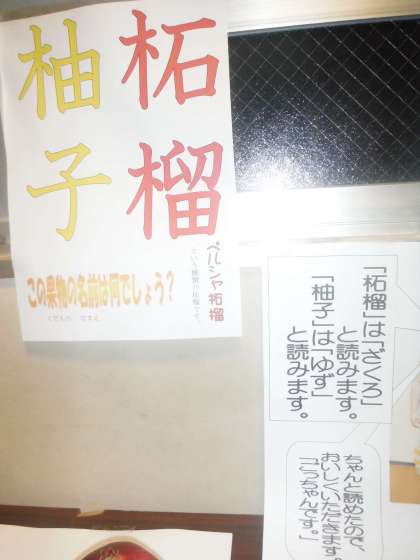 柘榴
柚子
ペルシャ柘榴
という種類の柘榴です。
この果物の名前は何でしょう？
くだもの なまえ
「柘榴」は「ざくろ」
と読みます。
「柚子」は「ゆず」
と読みます。
ちゃんと読めたので、
おいしくいただきます。
「ごっちゃんです。」